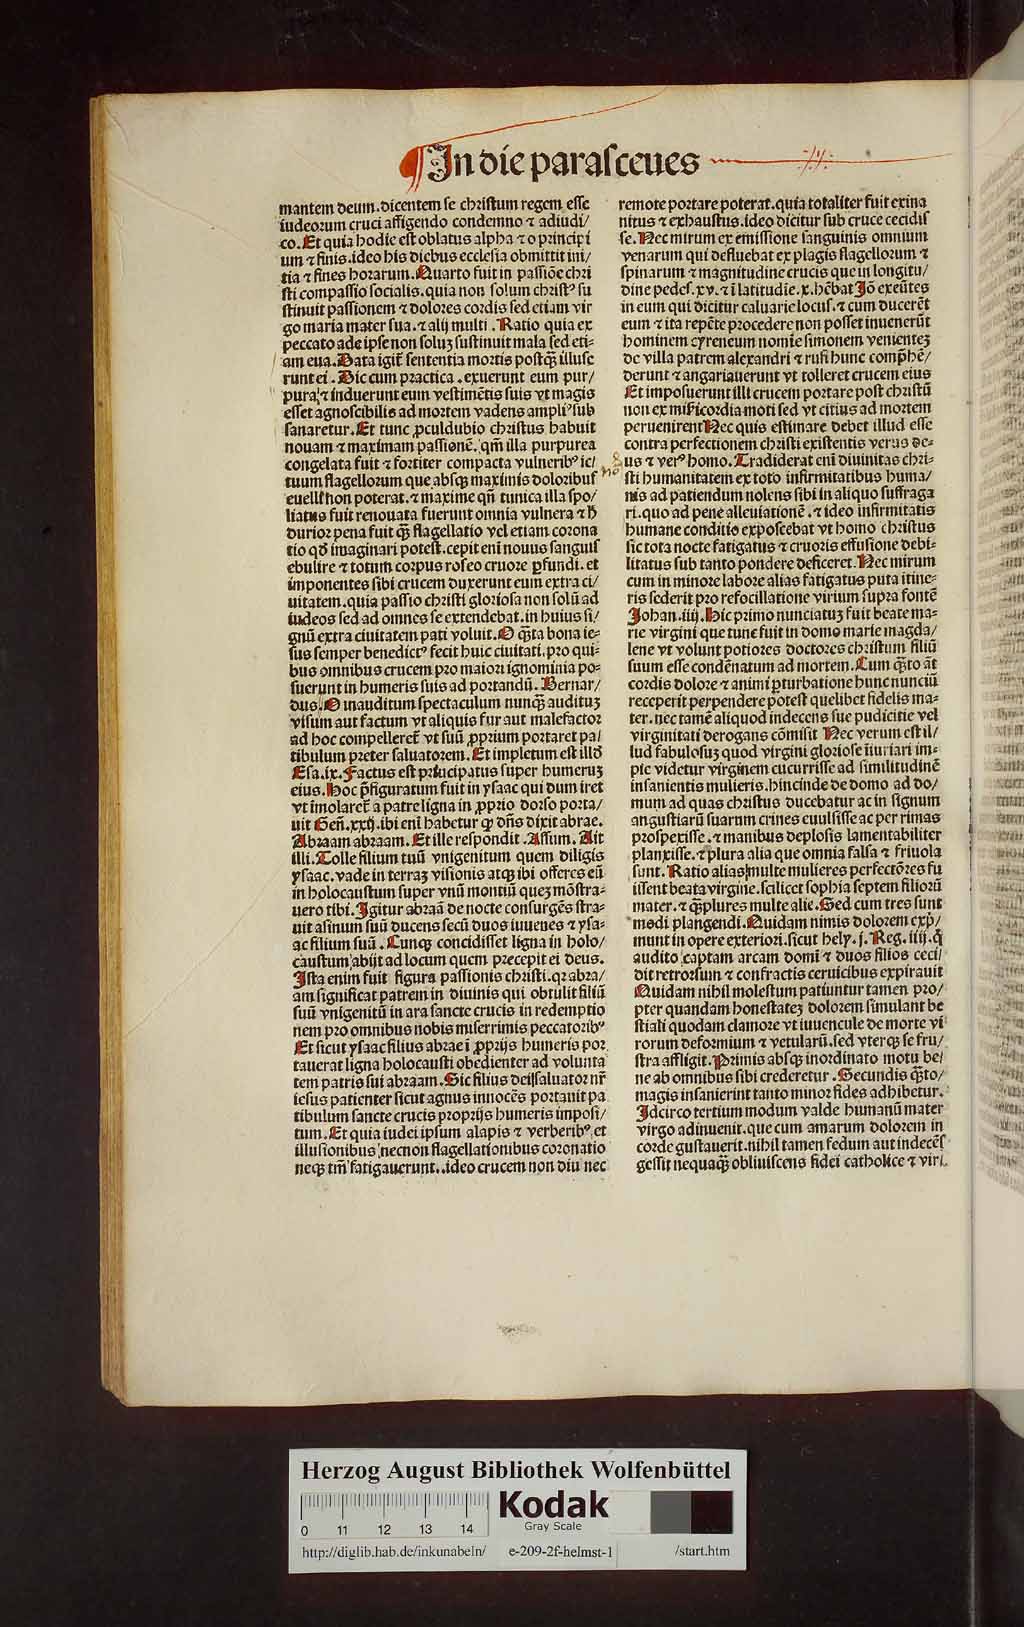 In die parasceues
mantem deum.dicentem se christum regem esse
iudeorum cruci affigendo condemno ⁊ adiudi/
co.Et quia hodie est oblatus alpha ⁊ o principi
um ⁊ finis.ideo his diebus ecclesia obmittit ini/
tia ⁊ fines horarum.Quarto fuit in passiōe chri
sti compassio socialis.quia non solum christꝰ su
stinuit passionem ⁊ dolores cordis sed etiam vir
go maria mater sua.⁊ alij multi.Ratio quia ex
peccato ade ipse non soluꝫ sustinuit mala sed eti-
am eua.Data igit̃ sententia mortis postq̃ꝫ illuse
runt ei.Hic cum practica.exuerunt eum pur/
pura/⁊ induerunt eum vestimētis suis vt magis
esset agnoscibilis ad mortem vadens ampliꝰ sub
sanaretur.Et tunc ꝓculdubio christus habuit
nouam ⁊ maximam passionē.qm̄ illa purpurea
congelata fuit ⁊ fortiter compacta vulneribꝰ ic/
tuum flagellorum que absqꝫ maximis doloribus
euelli non poterat.⁊ maxime qn̄ tunica illa spo/
liatus fuit renouata fuerunt omnia vulnera ⁊ h̄
durior pena fuit q̃ꝫ flagellatio vel etiam corona
tio qd̄ imaginari potest.cepit enī nouus sanguis
ebulire ⁊ totum corpus roseo cruore ꝑfundi.et
imponentes sibi crucem duxerunt eum extra ci/
uitatem.quia passio christi gloriosa non solū ad
iudeos sed ad omnes se extendebat.in huius si/
gnū extra ciuitatem pati voluit.O q̃ꝫta bona ie-
sus semper benedictꝰ fecit huic ciuitati.pro qui-
bus omnibus crucem pro maiori ignominia po-
suerunt in humeris suis ad portandū.Bernar/
dus.O inauditum spectaculum nunq̃ꝫ audituꝫ
visum aut factum vt aliquis fur aut malefactor
ad hoc compelleret̃ vt suū ꝓprium portaret pa/
tibulum preter saluatorem.Et impletum est illd̄
Esa.ix.Factus est principatus super humeruꝫ
eius.Hoc p̄figuratum fuit in ysaac qui dum iret
vt imolaret̃ a patre ligna in ꝓprio dorso porta/
uit Geñ.xxij.ibi enī habetur qꝫ dn̄s dixit abrae.
Abraam abraam.Et ille respondit.Assum.Ait
illi.Tolle filium tuū vnigenitum quem diligis
ysaac.vade in terraꝫ visionis atqꝫ ibi offeres eū
in holocaustum super vnū montiū queꝫ mōstra-
uero tibi.Igitur abraā de nocte consurgēs stra-
uit asinum suū ducens secū duos iuuenes ⁊ ysa-
ac filium suū.Cunqꝫ concidisset ligna in holo/
caustum abijt ad locum quem precepit ei deus.
Ista enim fuit figura passionis christi.qꝛ abra/
am significat patrem in diuinis qui obtulit filiū
suū vnigenitū in ara sancte crucis in redemptio
nem pro omnibus nobis miserrimis peccatoribꝰ
Et sicut ysaac filius abrae ī ꝓprijs humeris por
tauerat ligna holocausti obedienter ad volunta
tem patris sui abraam.Sic filius dei saluator nr̄
iesus patienter sicut agnus innocēs portauit pa
tibulum sancte crucis proprijs humeris imposi/
tum.Et quia iudei ipsum alapis ⁊ verberibꝰ,et
illusionibus necnon flagellationibus coronatio
neqꝫ tm̄ fatigauerunt..ideo crucem non diu nec
remote portare poterat.quia totaliter fuit exina
nitus ⁊ exhaustus.ideo dicitur sub cruce cecidis
se.Nec mirum ex emissione sanguinis omnium
venarum qui defluebat ex plagis flagellorum ⁊
spinarum ⁊ magnitudine crucis que in longitu/
dine pedes.xv.⁊ ī latitudīe.x.hēbat Iō exeūtes
in eum qui dicitur caluarie locus.⁊ cum ducerēt
eum ⁊ ita repēte procedere non posset inuenerūt
hominem cyreneum nomīe simonem venienteꝫ
de villa patrem alexandri ⁊ rufi hunc comp̄hē/
derunt ⁊ angariauerunt vt tolleret crucem eius
Et imposuerunt illi crucem portare post christū
non ex mīsericordia moti sed vt citius ad mortem
peruenirent Nec quis estimare debet illud esse
contra perfectionem christi existentis verus de-
us ⁊ verꝰ homo.Tradiderat enī diuinitas chri-
sti humanitatem ex toto infirmitatibus huma/
nis ad patiendum nolens sibi in aliquo suffraga
ri.quo ad pene alleuiationē.⁊ ideo infirmitatis
humane conditio exposcebat vt homo christus
sic tota nocte fatigatus ⁊ cruoris effusione debi-
litatus sub tanto pondere deficeret.Nec mirum
cum in minore labore alias fatigatus puta itine-
ris sederit pro refocillatione virium supra fontē
Johan.iiij.Hic primo nunciatuꝫ fuit beate ma-
rie virgini que tunc fuit in domo marie magda/
lene vt volunt potiores doctores christum filiū
suum esse condēnatum ad mortem.Cum q̃ꝫto āt
cordis dolore ⁊ animi ꝑturbatione hunc nunciū
receperit perpendere potest quelibet fidelis ma-
ter.nec tamē aliquod indecens sue pudicitie vel
virginitati derogans cōmisit Nec verum est il/
lud fabulosuꝫ quod virgini gloriose īiuriari im-
pie videtur virginem cucurrisse ad similitudinē
insanientis mulieris.hincinde de domo ad do/
mum ad quas christus ducebatur ac in signum
angustiarū suarum crines euulsisse ac per rimas
prospexisse.⁊ manibus deplosis lamentabiliter
planxisse.⁊ plura alia que omnia falsa ⁊ friuola
sunt.Ratio alias multe mulieres perfectōres fu
issent beata virgine.scilicet sophia septem filiorū
mater.⁊ q̃ꝫplures multe alie.Sed cum tres sunt
modi plangendi.Quidam nimis dolorem exp̄/
munt in opere exteriori.sicut hely.j.Reg.iiij.q̇
audito captam arcam domī ⁊ duos filios ceci/
dit retrorsum ⁊ confractis ceruicibus expirauit
Quidam nihil molestum patiuntur tamen pro/
pter quandam honestateꝫ dolorem simulant be
stiali quodam clamore vt iuuencule de morte vi
rorum deformium ⁊ vetularū.sed vterqꝫ se fru/
stra affligit.Primis absqꝫ inordinato motu be/
ne ab omnibus sibi crederetur.Secundis q̃ꝫto/
magis insanierint tanto minor fides adhibetur.
Idcirco tertium modum valde humanū mater
virgo adinuenit.que cum amarum dolorem in
corde gustauerit.nihil tamen fedum aut indecēs
gessit nequaq̃ꝫ obliuiscens fidei catholice ⁊ viri.
Herzog August Bibliothek Wolfenbüttel
Kodak
Gray Scale
0 11 12 13 14
http://diglib.hab.de/inkunabeln/ e-209-2f-helmst-1 /start.htm